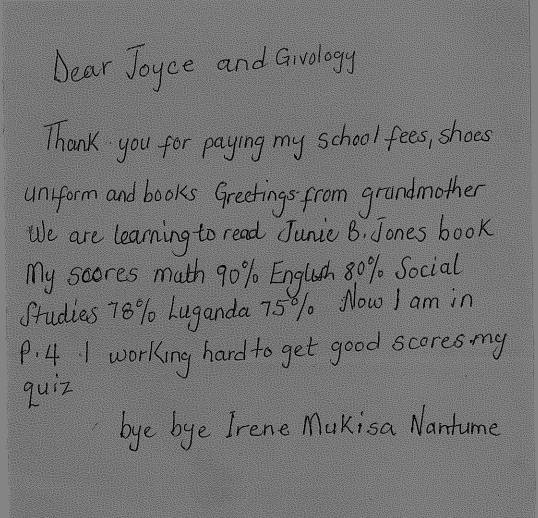 Dear Joyce and Givology
Thank you for paying my school fees, shoes
uniform and books Greetings from grandmother
We are learning to read Junie B. Jones book
My scores math 90% English 80% Social
Studies 78% Luganda 75% Now I am in
P.4 I working hard to get good scores my
quiz
bye bye Irene Mukisa Nantume